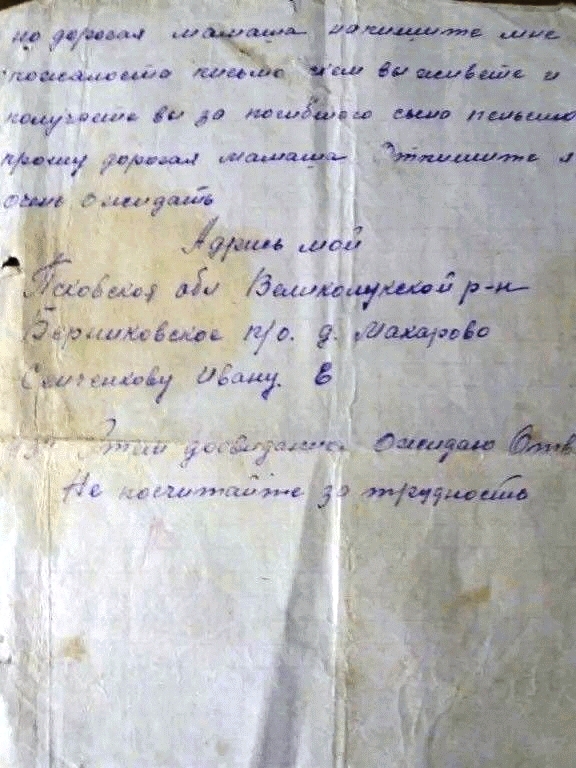 но дорогая мамаша напишите мне
пожалоста письмо чем вы живете и
получаете вы за погибшого сына пенсию
прошу дорогая мамаша Отпишите я
очень ожидать
Адрись мой
Псковская обл Великолукской р-н
п/о. д. Макарово
Семченкову Ивану. Е
Этим досвидания ожидаю Отв
Не посчитайте за трудность